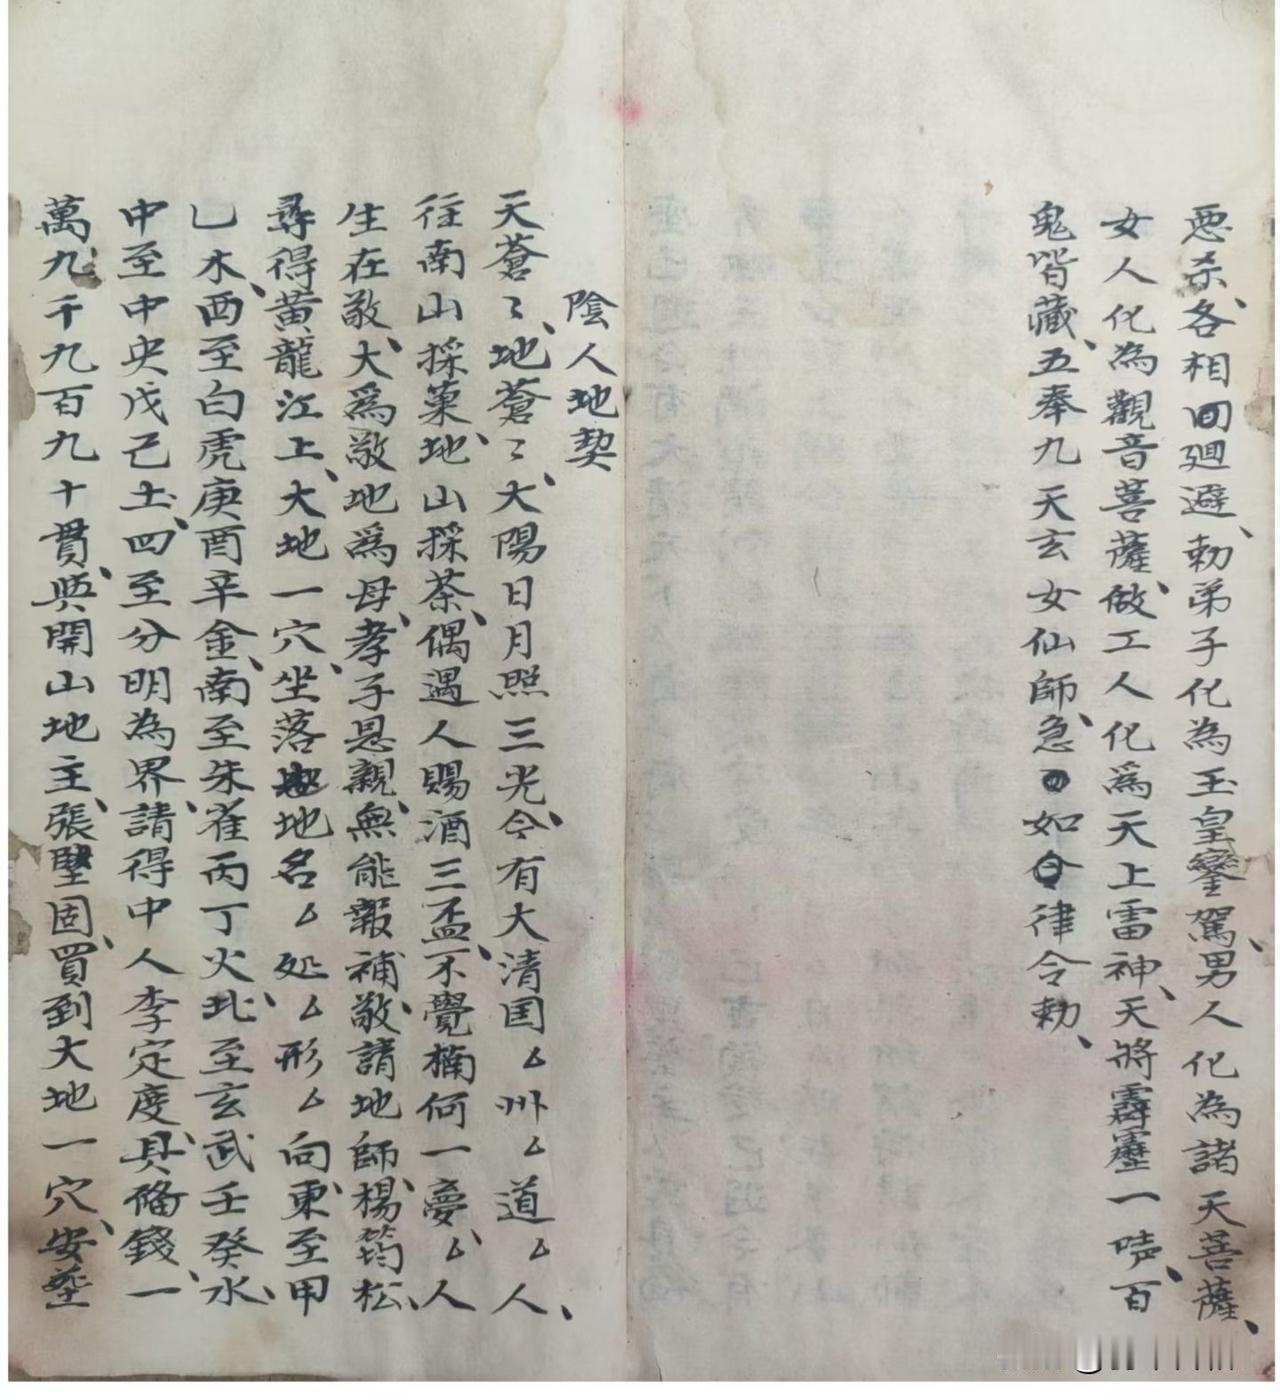 恶杀、各相回廻避、勅弟子化為玉皇鑾駕、男人化為諸天菩薩、
女人化為觀音菩薩、做工人化爲天上雷神、天將霹靂一声、百
鬼皆藏、五奉九天玄女仙師、急如律令勅、
陰人地契
天蒼〻、地蒼〻、大陽日月照三光、今有大清国厶州厶道厶人、
往南山採菓、地山採茶、偶遇人賜酒三盃、不覺楠何一夢、厶人
生在敬、大爲敬地爲母、孝子恩親、無能報補、敬請地師、楊筠松、
尋得黄龍江上、大地一穴、坐落地名厶处厶形厶向、東至甲
乙木、西至白虎庚酉辛金、南至朱雀丙丁火、北至玄武壬癸水、
中至中央戊己土、四至分明為界、請得中人李定度、具俻錢、一
萬九千九百九十貫、與開山地主、張堅固、買到大地一穴、安葬